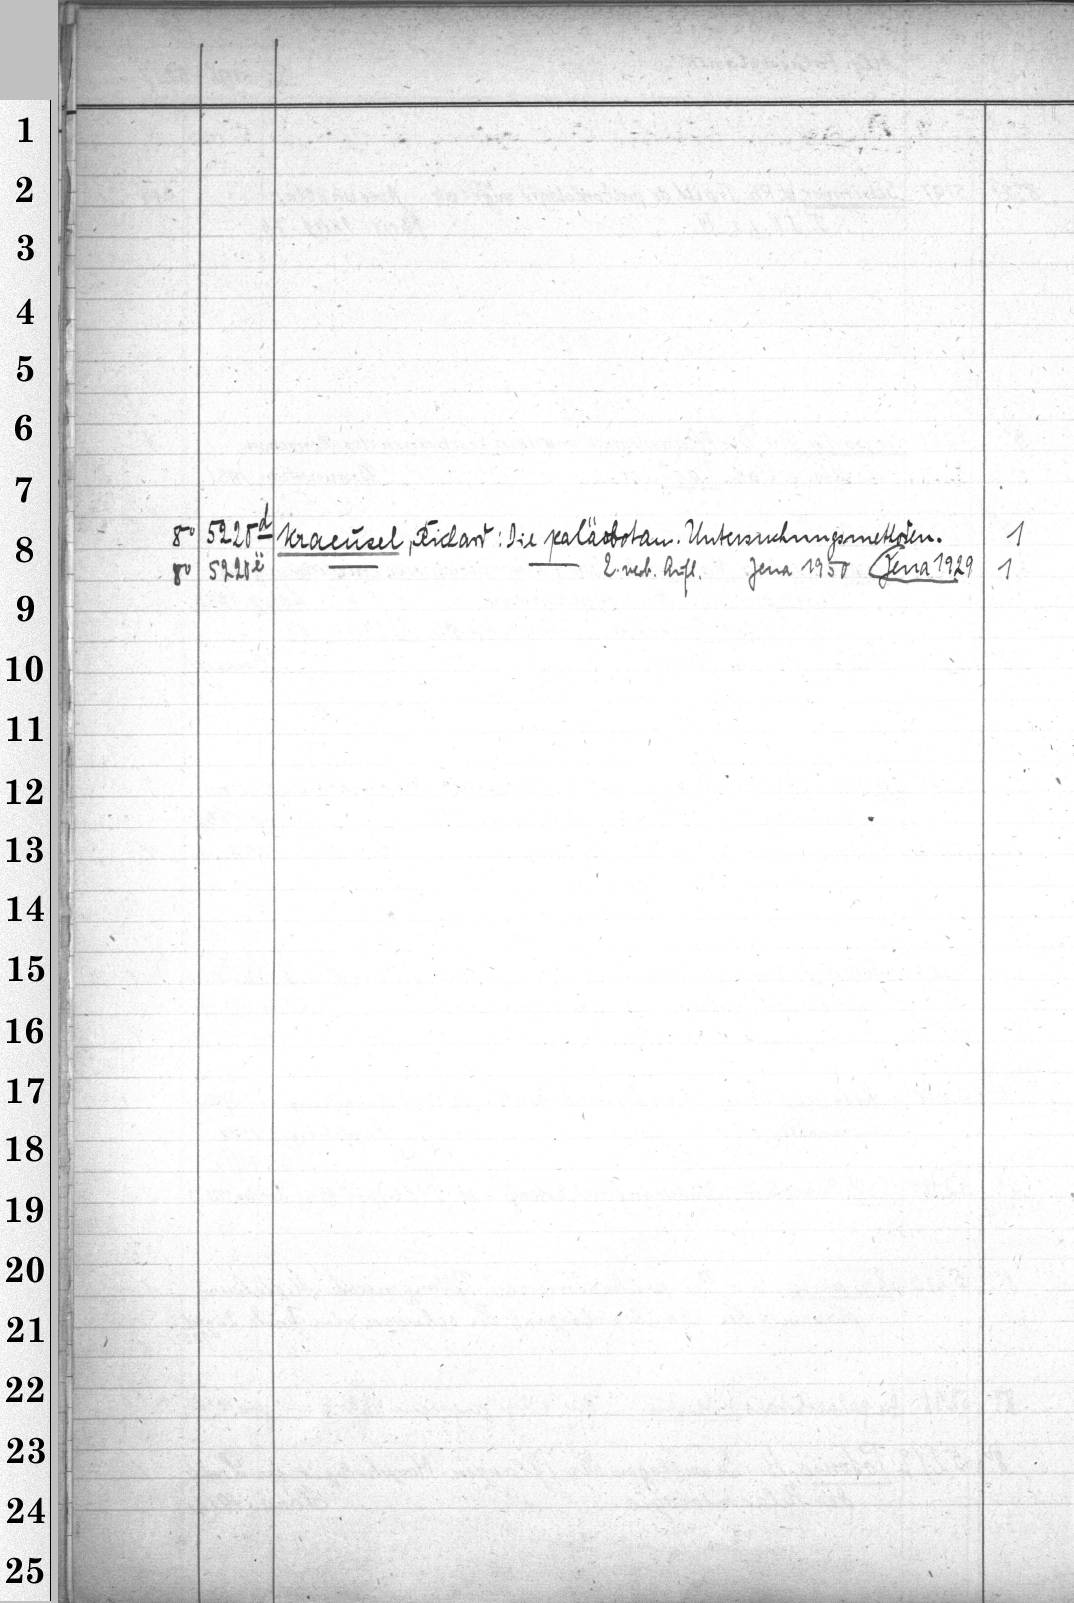 1
2
3
4
5
6
7
8° 5225d Kraeusel, Richard: Die paläobotan. Untersuchungsmethoden. 1
8
8° 5225e — — 2. verb. Aufl. Jena 1950 (Jena 1929 1
9
10
11
12
13
14
15
16
17
18
19
20
21
22
23
24
25